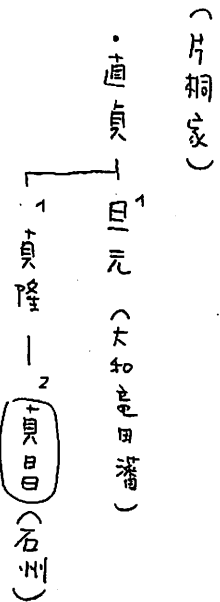 (片桐家)
・直貞 — 1 旦元 (大和竜田藩)
1 貞隆 — 2 貞昌 (石州)